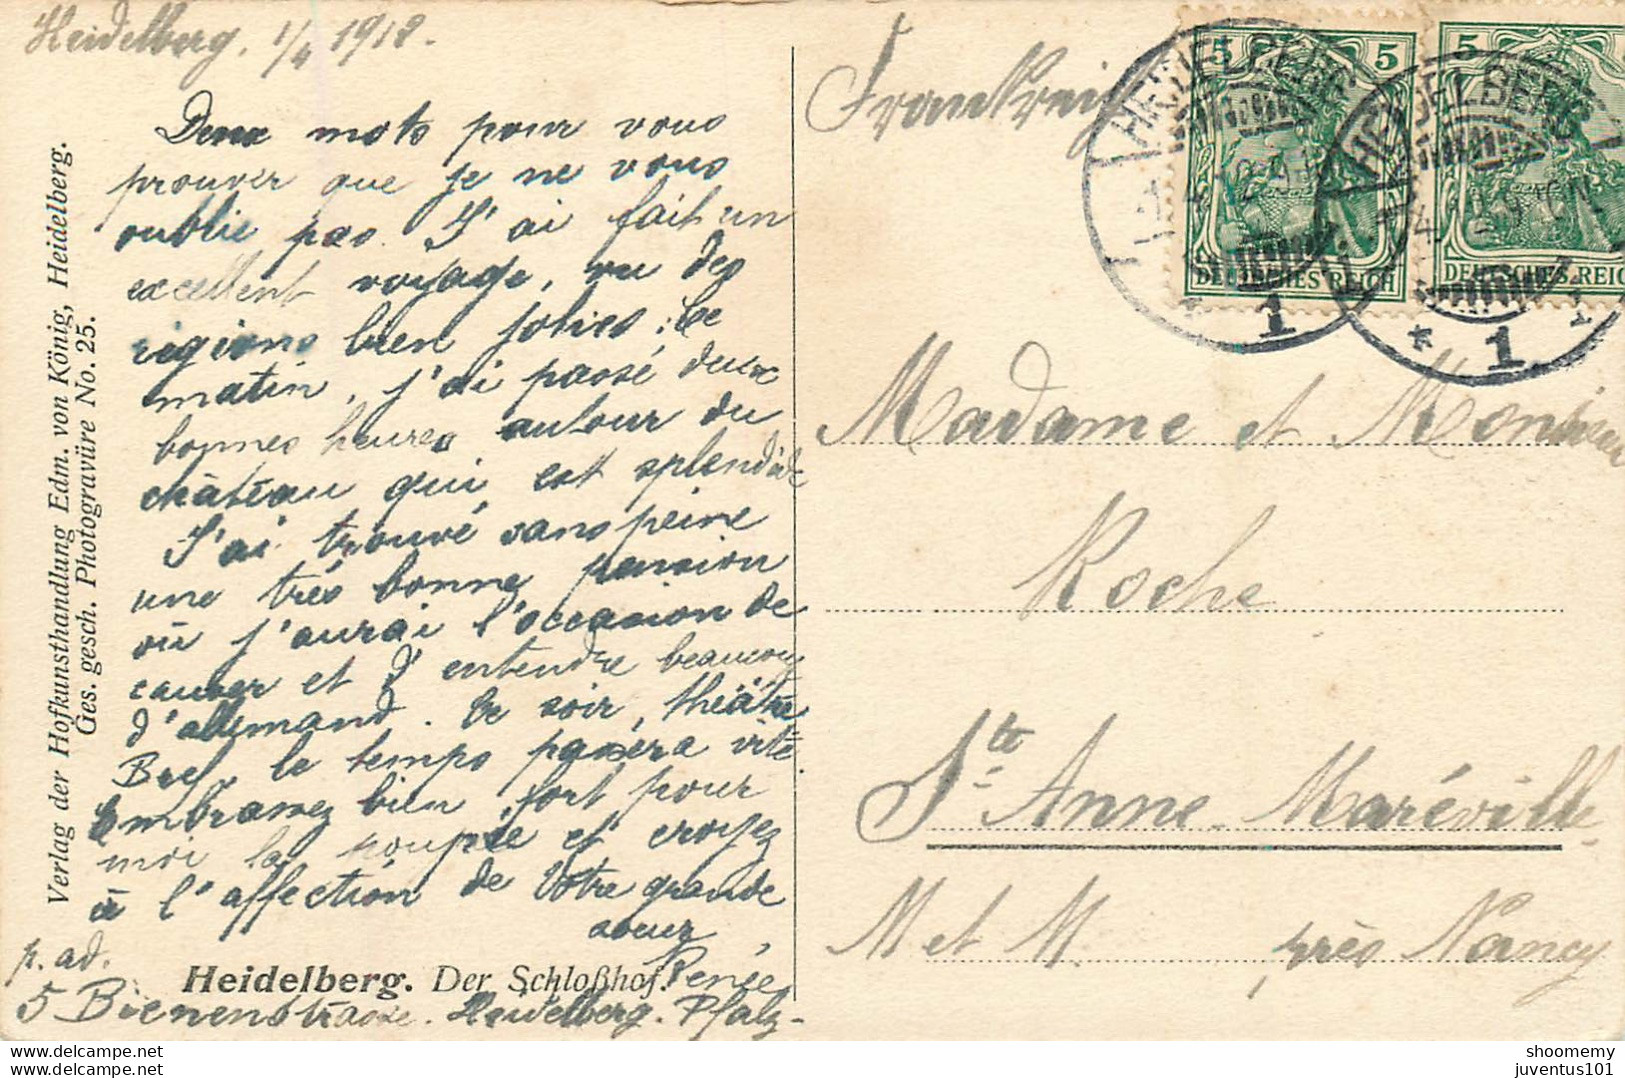 Heidelberg, 1/4 1912.
Deux mots pour vous
prouver que je ne vous
oublie pas. J'ai fait un
excellent voyage, vu des
régions bien jolies; Ce
matin, j'ai passé deux
bonnes heures autour du
château qui est splendide
J'ai trouvé sans peine
une très bonne pension
où j'aurai l'occasion de
causer et d'entendre beaucoup
d'allemand. Ce soir, théâtre
Bref, le temps passera vite.
Embrassez bien fort pour
moi la poupée et croyez
à l'affection de Votre grande
soeur,
Renée
p. ad.
5 Bienenstrasse. Heidelberg. Pfalz-
Heidelberg. Der Schloßhof.
Verlag der Hofkunsthandlung Edm. von König, Heidelberg.
Ges. gesch. Photogravüre No. 25.
Frankreich
5
DEUTSCHES REICH
5
DEUTSCHES REICH
HEIDELBERG
* 1
HEIDELBERG
* 1
Madame et Monsieur
Roche
Ste Anne Maréville
M et M. près Nancy
shoomemy
juventus101